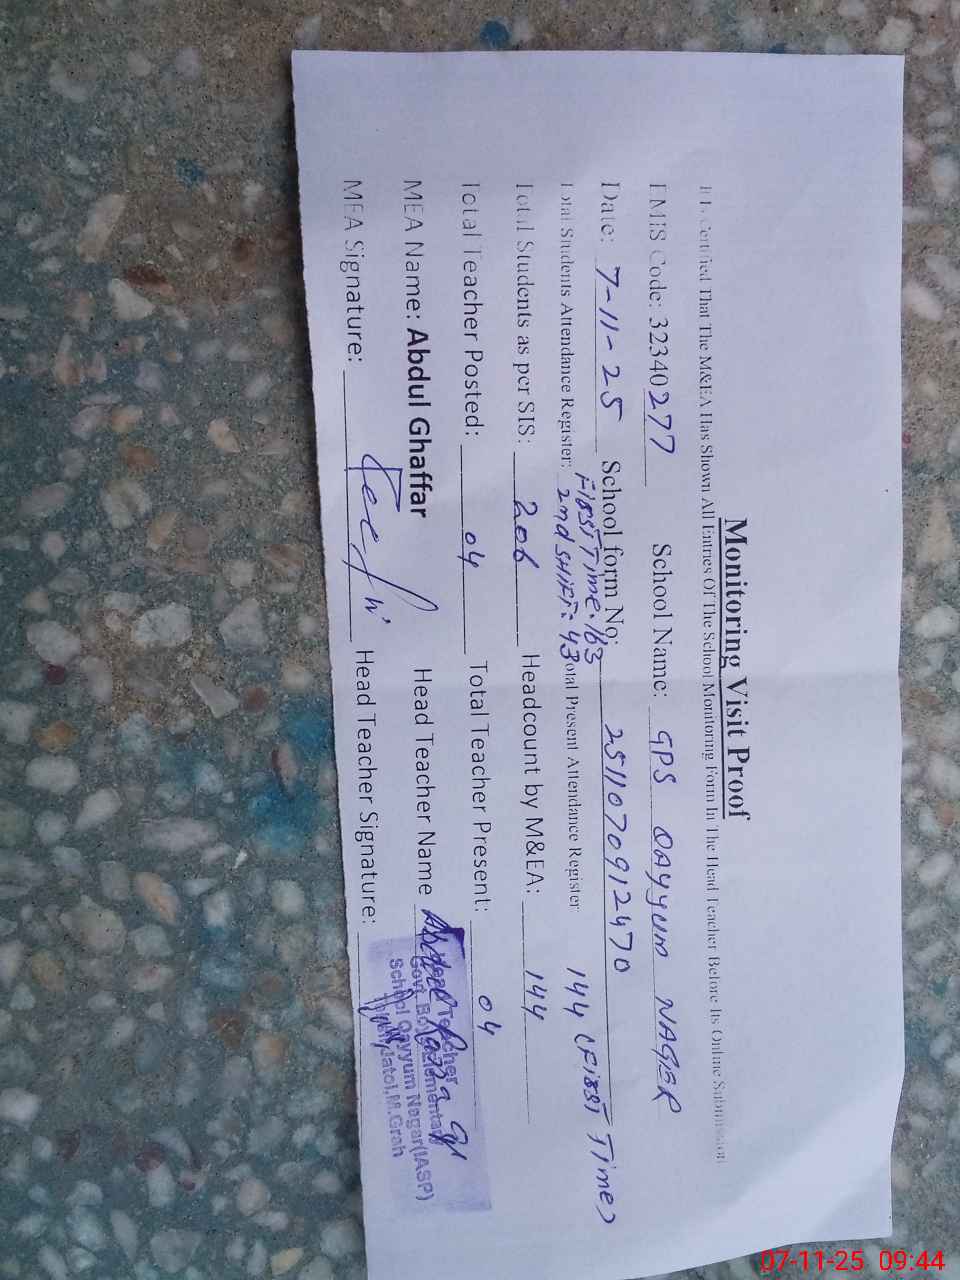 Monitoring Visit Proof
It Is Certified That The M&EA Has Shown All Entries Of The School Monitoring Form In The Head Teacher Before Its Online Submission
EMIS Code: 32340277 School Name: GPS QAYYUM NAGER
Date: 7-11-25 School form No: 2511070912470
FIRST TIME: 163
Total Students Attendance Register: 2nd SHIFT: 43 Total Present Attendance Register 144 (FIRST TIME)
Total Students as per SIS: 206 Headcount by M&EA: 144
Total Teacher Posted: 04 Total Teacher Present: 04
MEA Name: Abdul Ghaffar Head Teacher Name
MEA Signature: Head Teacher Signature:
Head Teacher
Govt. Boys Elementary
School Qayyum Nagar(IASP)
Jatoi, M.Grah
07-11-25 09:44